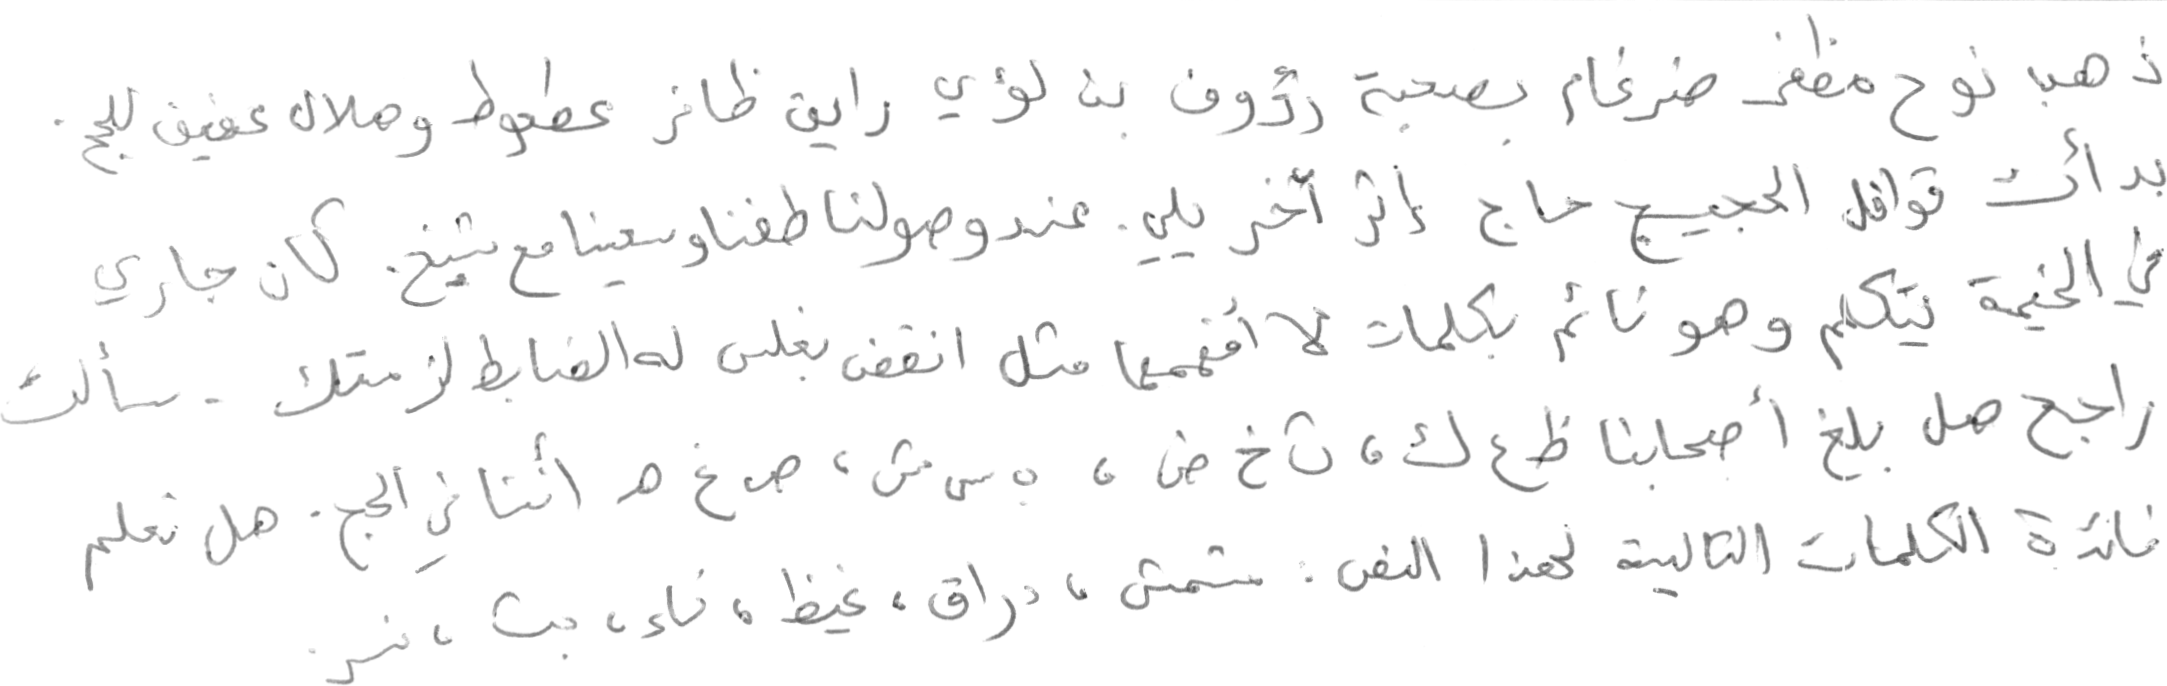 ذهب نوح مظفر ضرغام بصحبة رؤوف بن لؤي رايق ظافر عطعوط وهلال عفيف للحج.
بدأت قوافل الحجيج حاج إثر آخر يلي. عند وصولنا طفنا وسعينا مع شيخ. كان جاري
في الخيمة يتكلم وهو نائم بكلمات لا أفهمها مثل انقض بغلس له الضابط لزمتك . سألت
راجح هل بلغ أصحابنا ظ ع ك، ث خ ض، ه س ش، ص غ هـ أننا في الحج. هل تعلم
فائدة الكلمات التالية لهذا النص: مشمش، دراق، غيظ، ناء، بث، نسر.